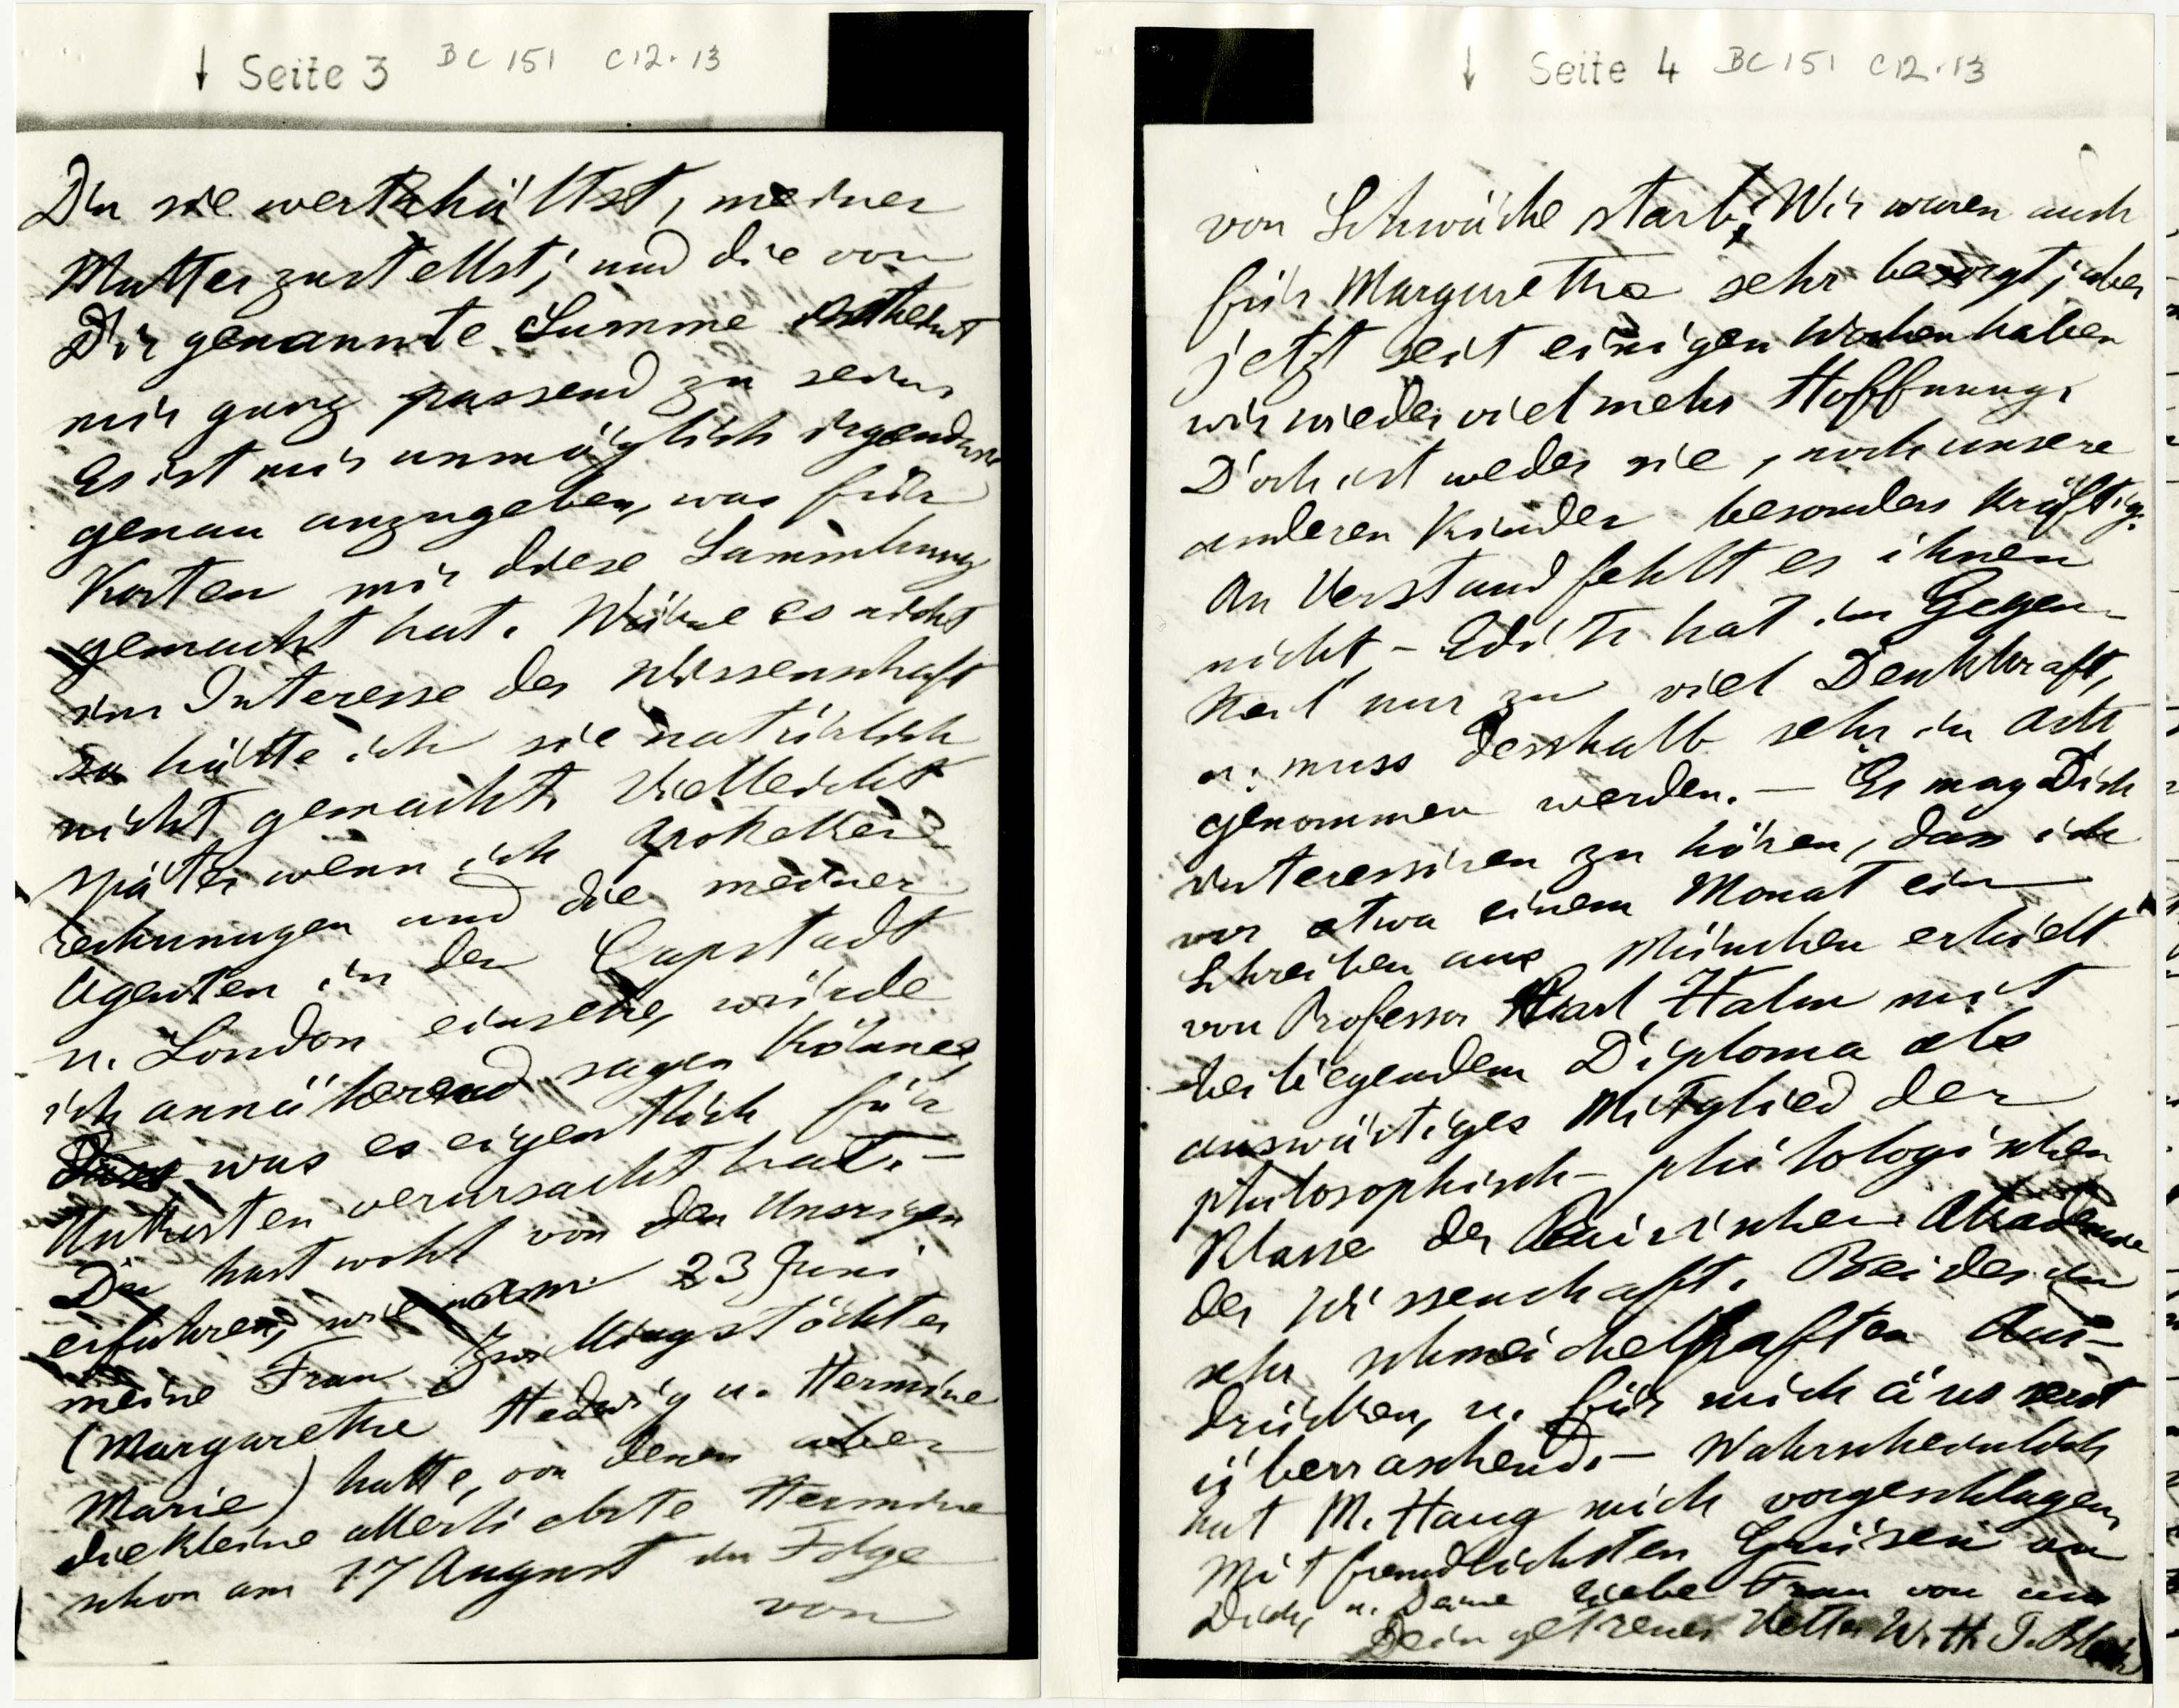 ↓ Seite 3 BC 151 C12.13
Du sie werth hältst, meiner
Mutter zustellst; und die von
Dir genannte Summe scheint
mir ganz passend zu sein.
Es ist mir unmöglich irgendwie
genau anzugeben, was für
Kosten mir diese Sammlung
gemacht hat. Wäre es nicht
im Interesse der Wissenschaft
so hätte ich sie natürlich
nicht gemacht. Vielleicht
später wenn ich Apotheker
rechnungen und die meiner
Agenten in der Capstadt
u. London einsehe, würde
ich annähernd sagen können,
was es eigentlich für
Unkosten verursacht hat. –
Du hast wohl von den Unsrigen
erfahren, wie am 23 Juni
meine Frau Zwillingstöchter
(Margarethe Hedwig u. Hermine
Marie) hatte, von denen aber
die kleine allerliebste Hermine
schon am 17 August in Folge
von
↓ Seite 4 BC 151 C12.13
von Schwäche starb. Wir waren auch
für Margarethe sehr besorgt; aber
jetzt seit einigen Wochen haben
wir wieder viel mehr Hoffnung.
Doch ist weder sie, noch unsere
anderen Kinder besonders kräftig.
An Verstand fehlt es ihnen
nicht, – Edith hat im Gegen-
theil nur zu viel Denkkraft,
u. muss desshalb sehr in Acht
genommen werden. – Es mag Dich
interessiren zu hören, dass ich
vor etwa einem Monat ein
Schreiben aus München erhielt
von Professor Karl Halm mit
beiliegendem Diploma als
auswärtiges Mitglied der
philosophisch-philologischen
Klasse der Bairischen Akademie
der Wissenschaft. Beides in
sehr schmeichelhaften Aus-
drücken, u. für mich äusserst
überraschend. – Wahrscheinlich
hat M. Haug mich vorgeschlagen.
Mit freundlichsten Grüssen an
Dich, u. Deine liebe Frau von uns
Dein getreuer Vetter W. H. I. Bleek